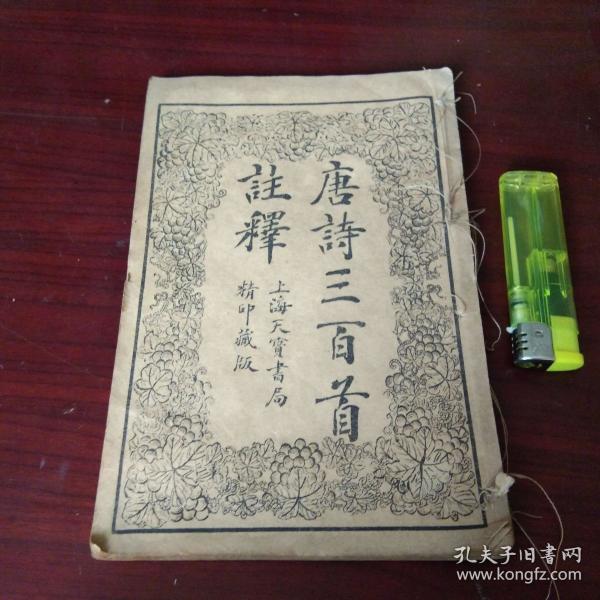 唐詩三百首
註釋
上海天寶書局
精印藏版
孔夫子旧书网
www.kongfz.com